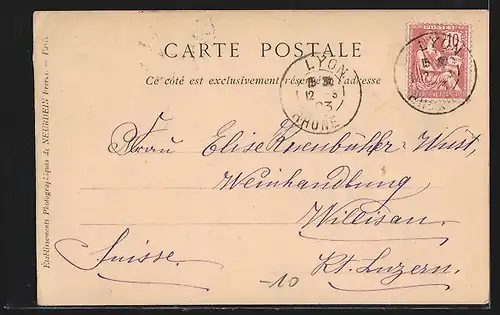 CARTE POSTALE
Ce côté est exclusivement réservé à l'adresse
LYON
15 30
12 -3
03
RHONE
10
LYON
Frau Elise Kneubühler-Wüst,
Weinhandlung
Willisau.
Suisse.
Kt. Luzern.
-10
Etablissements Photographiques de NEURDEIN Frères. — Paris